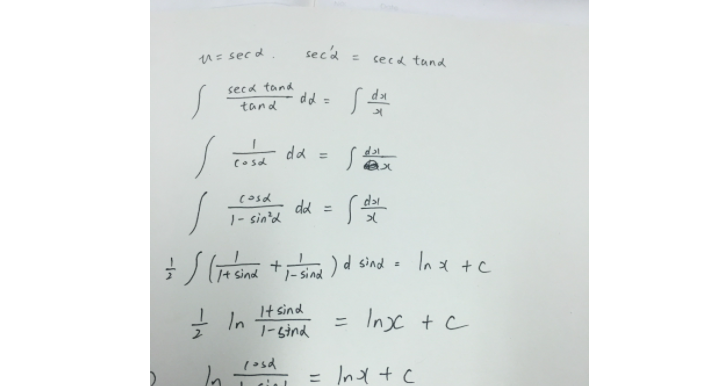 u = secα. sec'α = secα tanα
∫ secα tanα / tanα dα = ∫ dx / x
∫ 1 / cosα dα = ∫ dx / x
∫ cosα / 1 - sin²α dα = ∫ dx / x
1/2 ∫ ( 1 / 1+sinα + 1 / 1-sinα ) d sinα = ln x + C
1/2 ln 1+sinα / 1-sinα = lnx + C
ln cosα / = lnx + C